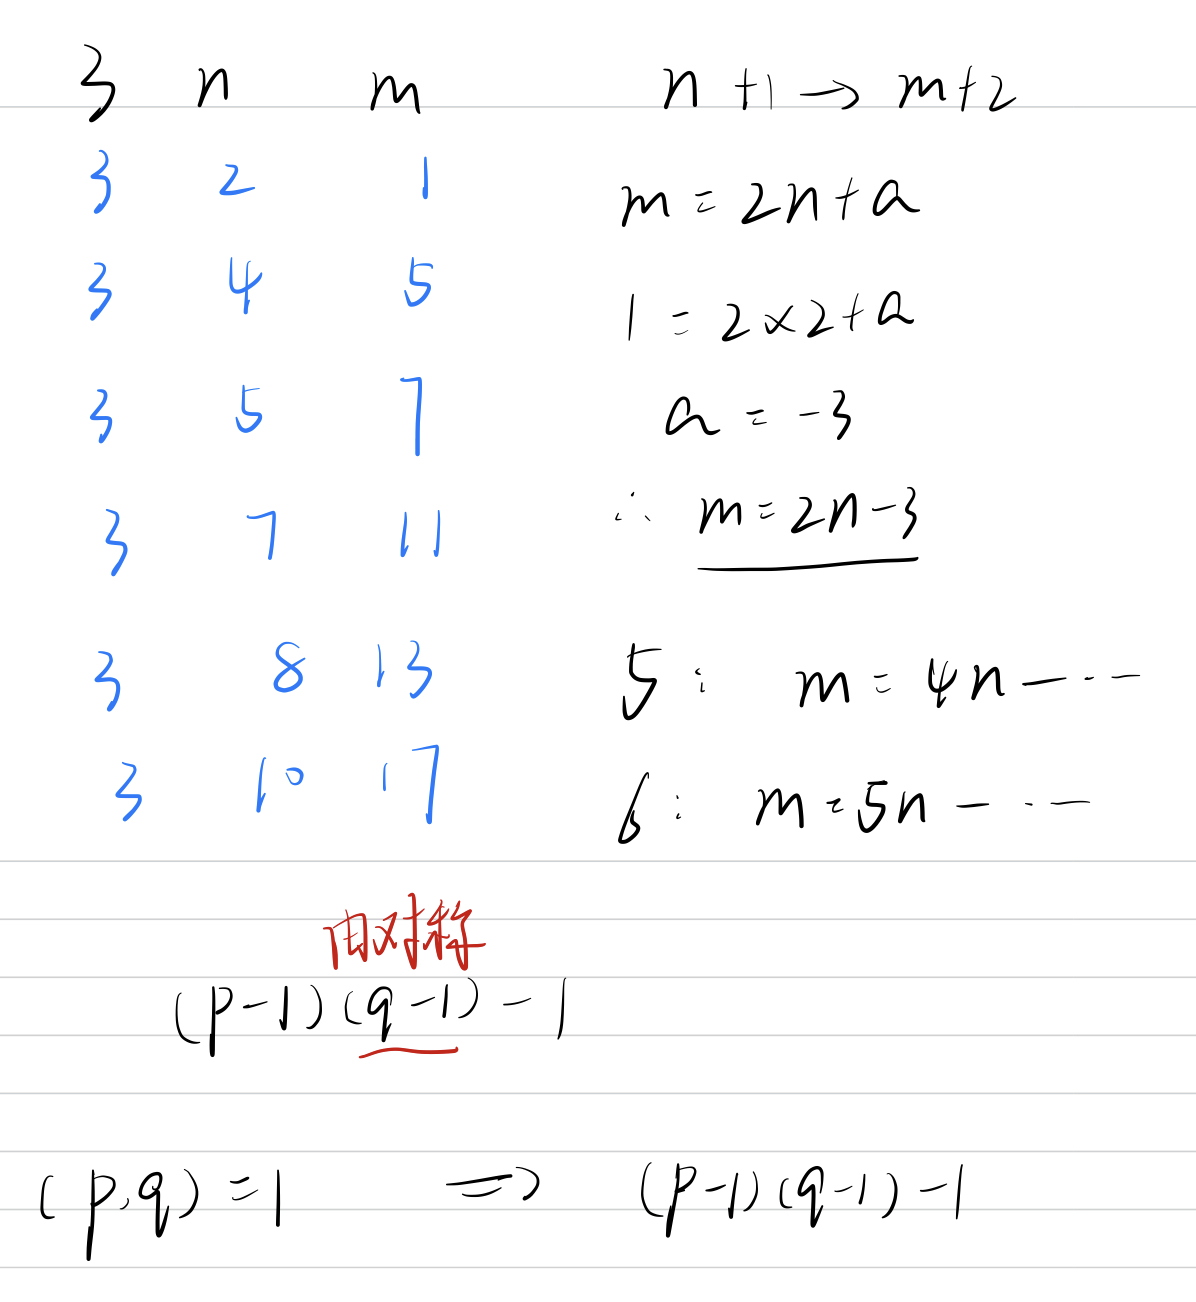 3 n m n+1→m+2
3 2 1 m=2n+a
3 4 5 1=2×2+a
3 5 7 a=-3
3 7 11 ∴ m=2n-3
3 8 13 5: m=4n-···-
3 10 17 6: m=5n-·-
由对称
(p-1)(q-1)-1
(p,q)=1 ⇒ (p-1)(q-1)-1